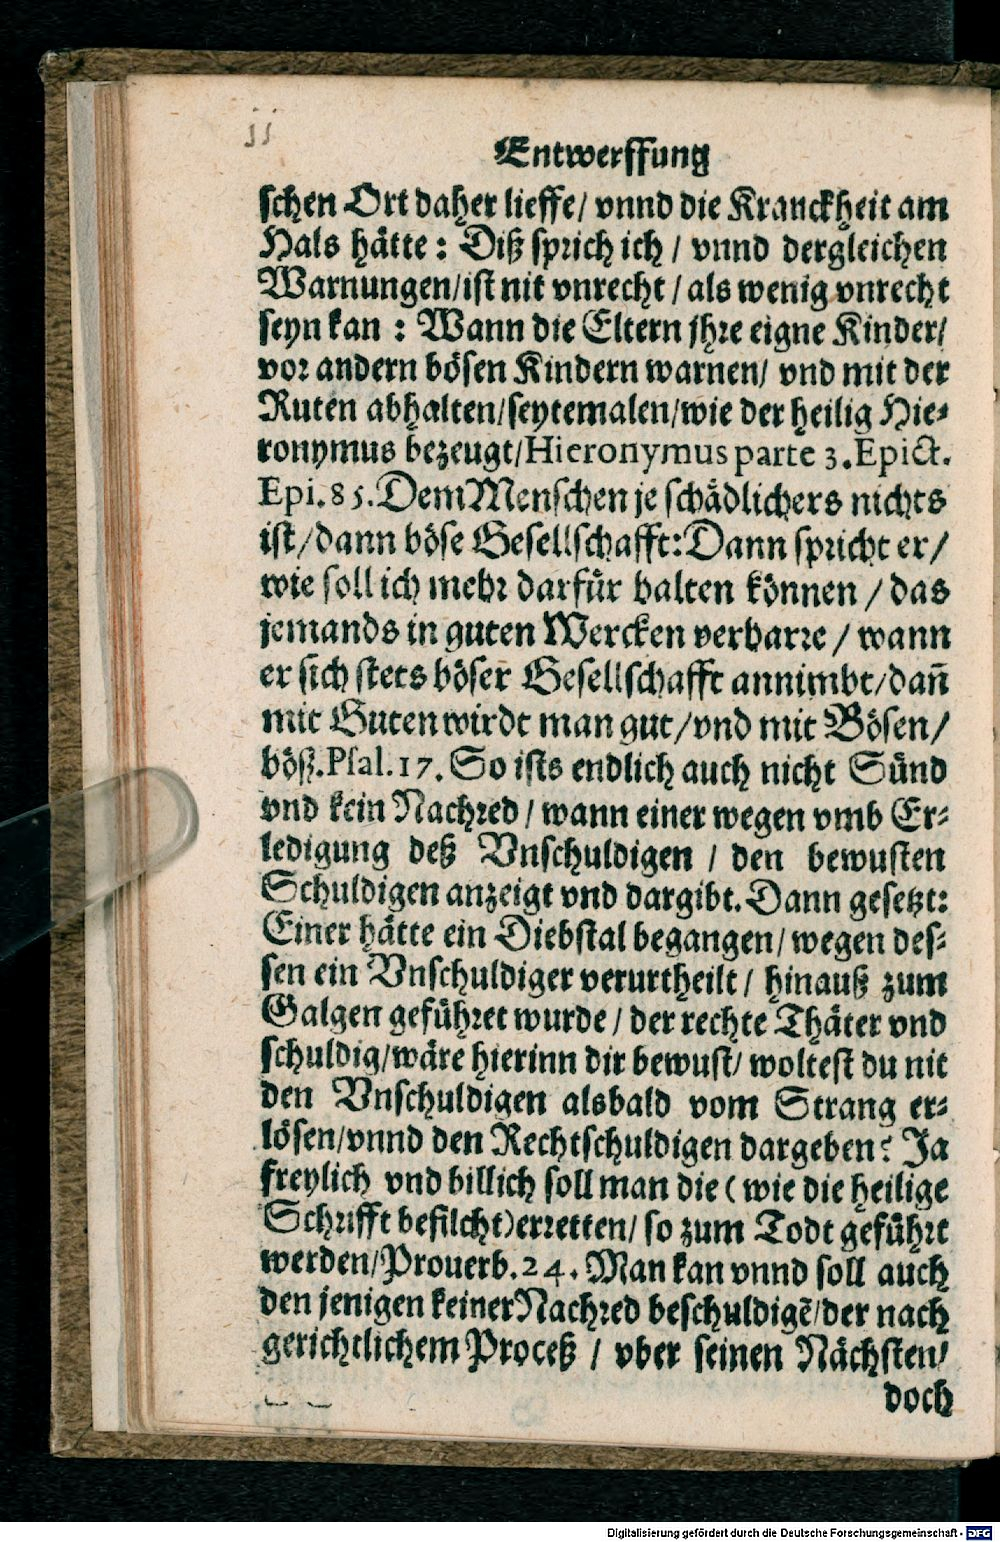 11
Entwerffung
schen Ort daher lieffe/ vnnd die Kranckheit am
Hals hätte: Diß sprich ich / vnnd dergleichen
Warnungen/ist nit vnrecht / als wenig vnrecht
seyn kan : Wann die Eltern jhre eigne Kinder/
vor andern bösen Kindern warnen/ vnd mit der
Ruten abhalten/seytemalen/wie der heilig Hie-
ronymus bezeugt/Hieronymus parte 3. Epict.
Epi. 85. Dem Menschen je schädlichers nichts
ist/dann böse Gesellschafft: Dann spricht er/
wie soll ich mehr darfür halten können / das
jemands in guten Wercken verharre / wann
er sich stets böser Gesellschafft annimbt/dañ
mit Guten wirdt man gut/vnd mit Bösen/
böß. Psal. 17. So ists endlich auch nicht Sünd
vnd kein Nachred / wann einer wegen vmb Er-
ledigung deß Vnschuldigen / den bewusten
Schuldigen anzeigt vnd dargibt. Dann gesetzt:
Einer hätte ein Diebstal begangen/ wegen des-
sen ein Vnschuldiger verurtheilt / hinauß zum
Galgen geführet wurde / der rechte Thäter vnd
schuldig/wäre hierinn dir bewust/ woltest du nit
den Vnschuldigen alsbald vom Strang er-
lösen/vnnd den Rechtschuldigen dargeben? Ja
freylich vnd billich soll man die ( wie die heilige
Schrifft befilcht) erretten/ so zum Todt geführt
werden/Prouerb. 24. Man kan vnnd soll auch
den jenigen keiner Nachred beschuldigẽ/der nach
gerichtlichem Proceß / vber seinen Nächsten/
doch
Digitalisierung gefördert durch die Deutsche Forschungsgemeinschaft - DFG